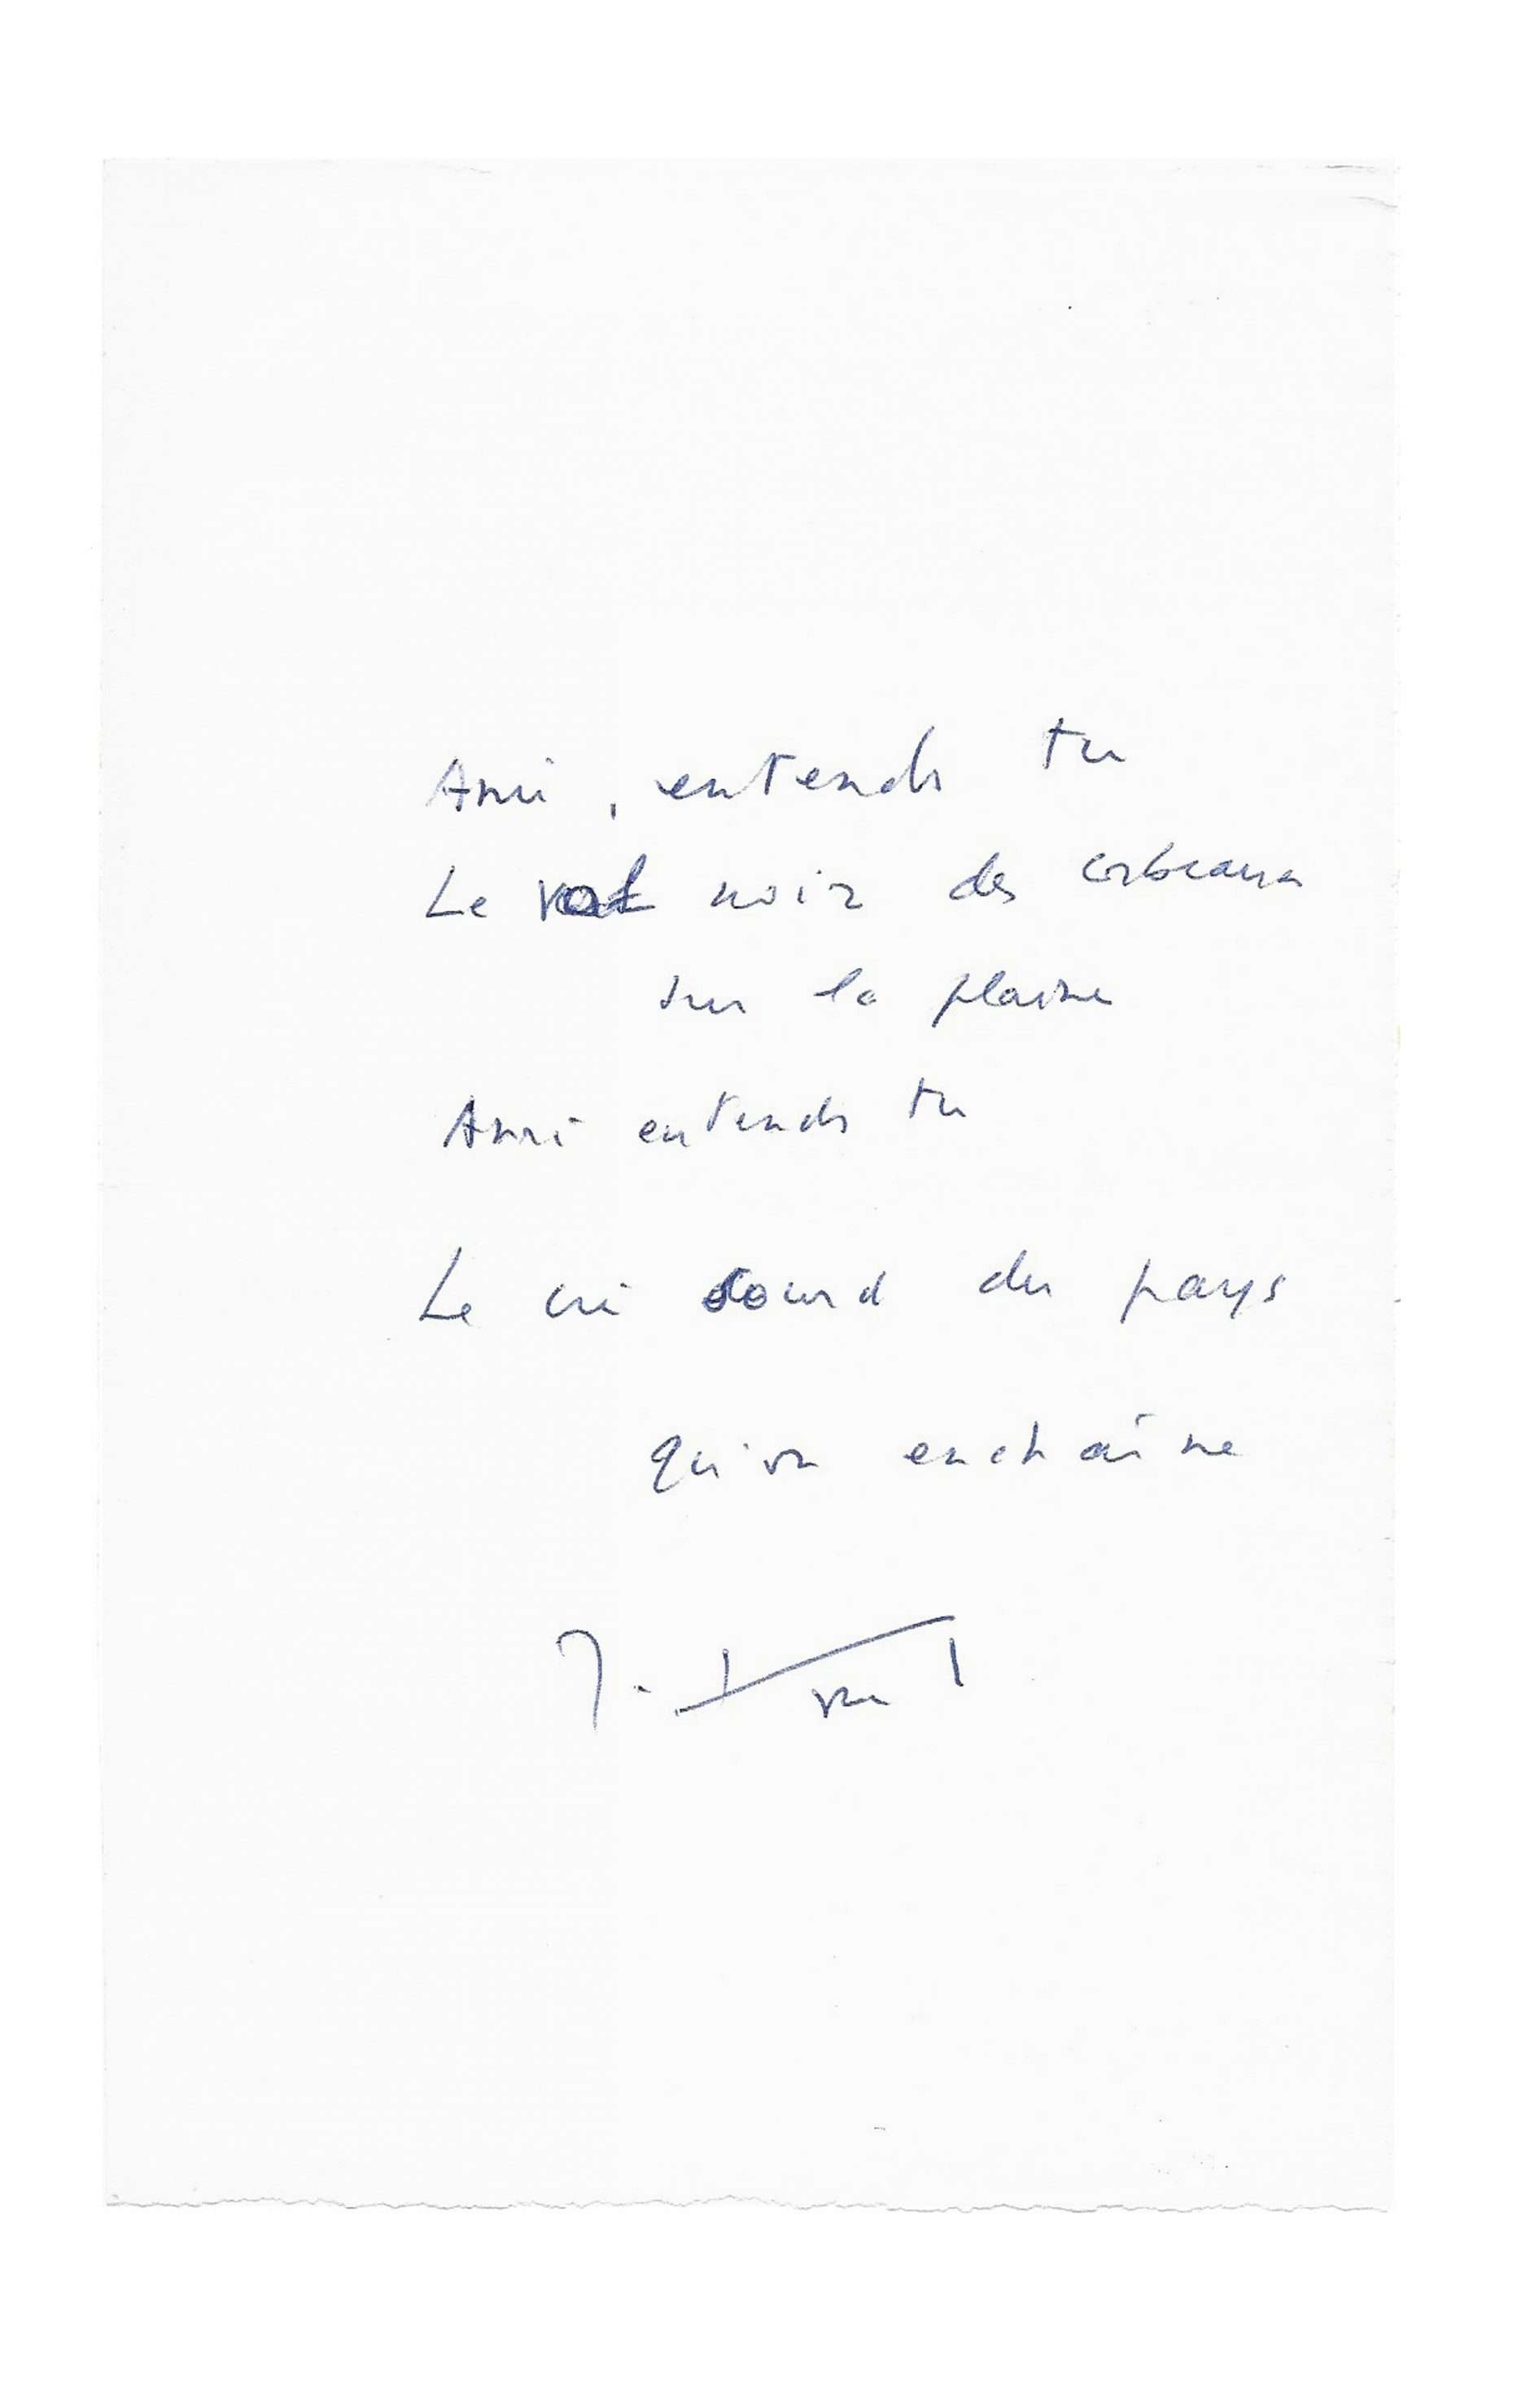 Ami, entends tu
Le vol noir des corbeaux
sur la plaine
Ami entends tu
Le cri sourd du pays
qu'on enchaîne